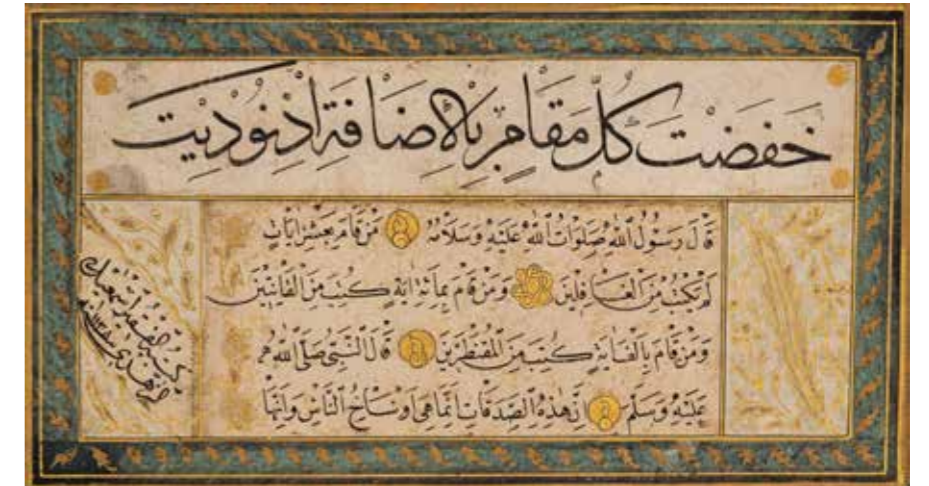 خَفَضْتَ كُلَّ مَقَامٍ بِالْإِضَافَةِ إِذْ نُودِيتَ
قَالَ رَسُولُ اللهِ صَلَوَاتُ اللهِ عَلَيْهِ وَسَلَامُهُ مَنْ قَامَ بِعَشْرِ آيَاتٍ
لَمْ يُكْتَبْ مِنَ الْغَافِلِينَ وَمَنْ قَامَ بِمِائَةِ آيَةٍ كُتِبَ مِنَ الْقَانِتِينَ
وَمَنْ قَامَ بِأَلْفِ آيَةٍ كُتِبَ مِنَ الْمُقَنْطِرِينَ قَالَ النَّبِيُّ صَلَّى اللهُ
عَلَيْهِ وَسَلَّمَ إِنَّ هَذِهِ الصَّدَقَاتِ إِنَّمَا هِيَ أَوْسَاخُ النَّاسِ وَإِنَّهَا
الفقير